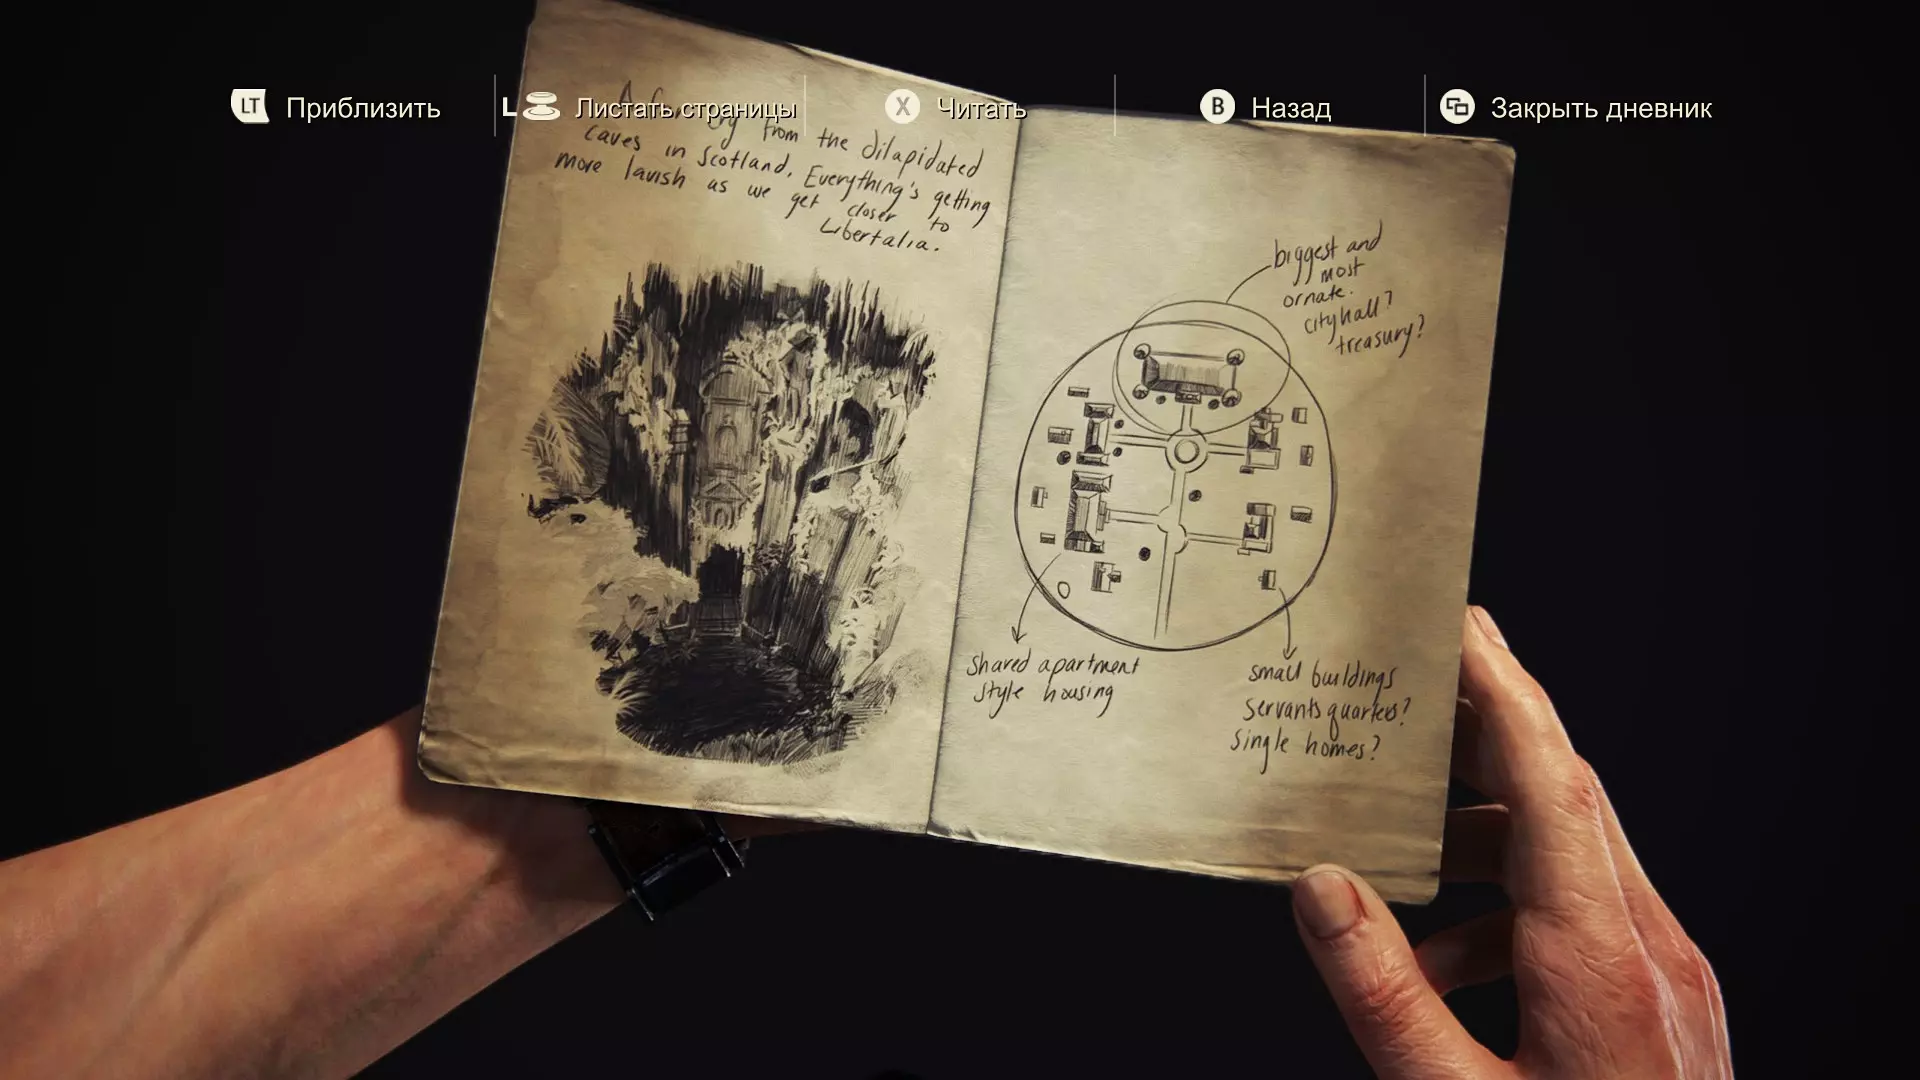 LT Приблизить
L Листать страницы
X Читать
B Назад
Закрыть дневник
A far cry from the dilapidated
caves in Scotland. Everything's getting
more lavish as we get closer to
Libertalia.
biggest and
most
ornate.
city hall?
treasury?
shared apartment
style housing
small buildings
servants quarters?
single homes?